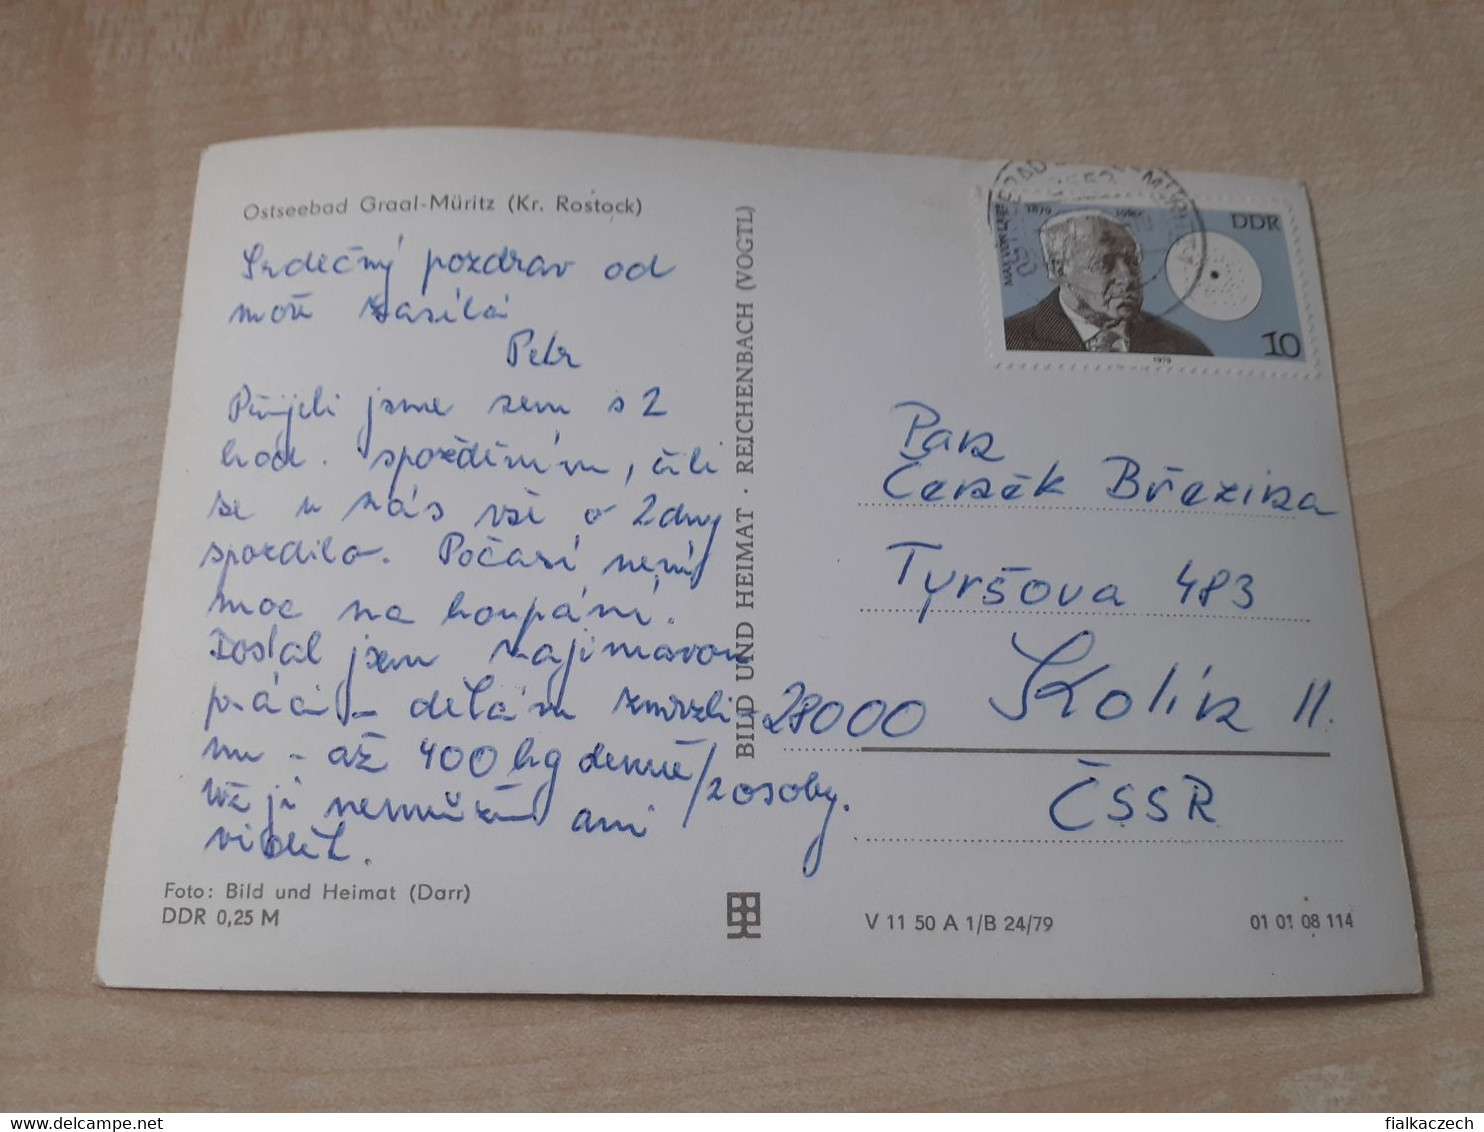 Ostseebad Graal-Müritz (Kr. Rostock)
Srdečný pozdrav od
moře zasílá
Petr
Přijeli jsme sem s 2
hod. zpožděním, čili
se u nás vše o 2 dny
spozdilo. Počasí není
moc na koupání.
Dostal jsem zajímavou
práci – dělám zmrzli-
nu – až 400 kg denně/2 osoby.
Už ji nemůžu ani
vidět.
Foto: Bild und Heimat (Darr)
DDR 0,25 M
BILD UND HEIMAT · REICHENBACH (VOGTL)
V 11 50 A 1/B 24/79
01 01 08 114
MAX VON LAUE
1879
1960
DDR
10
1979
Pan
Čeněk Březina
Tyršova 483
28000 Kolín II.
ČSSR
fialkaczech